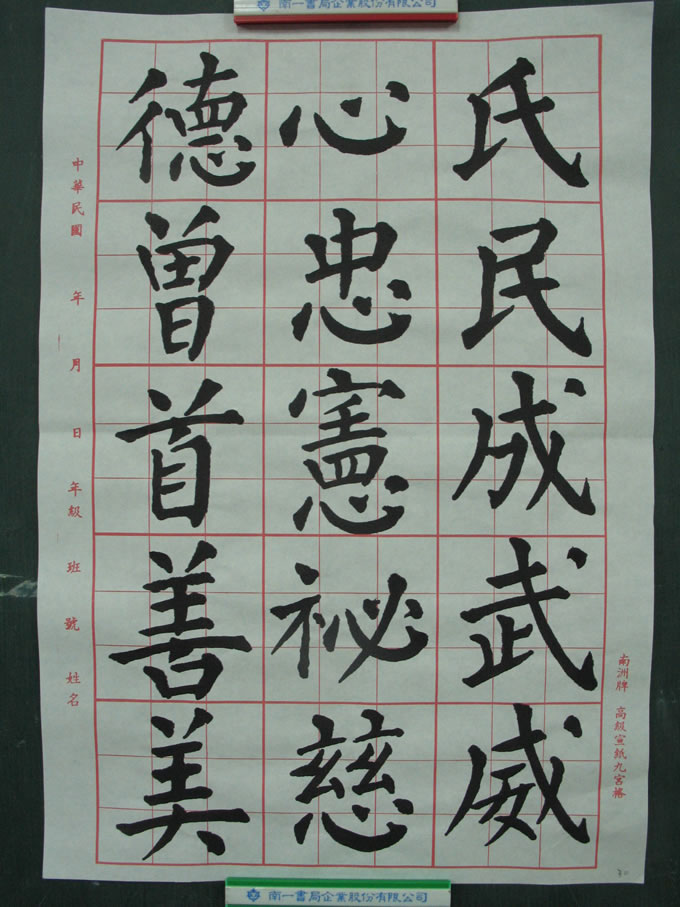 南一書局企業股份有限公司
氏民成武威
心忠憲祕慈
德曾首善美
中華民國 年 月 日 年級 班 號 姓名
南洲牌 高級宣紙九宮格
30
南一書局企業股份有限公司